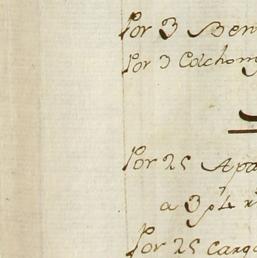 Por 3 Ben
Por 3 Colchon
Por 25 Apa
a 3 p 4 r
Por 25 Carg